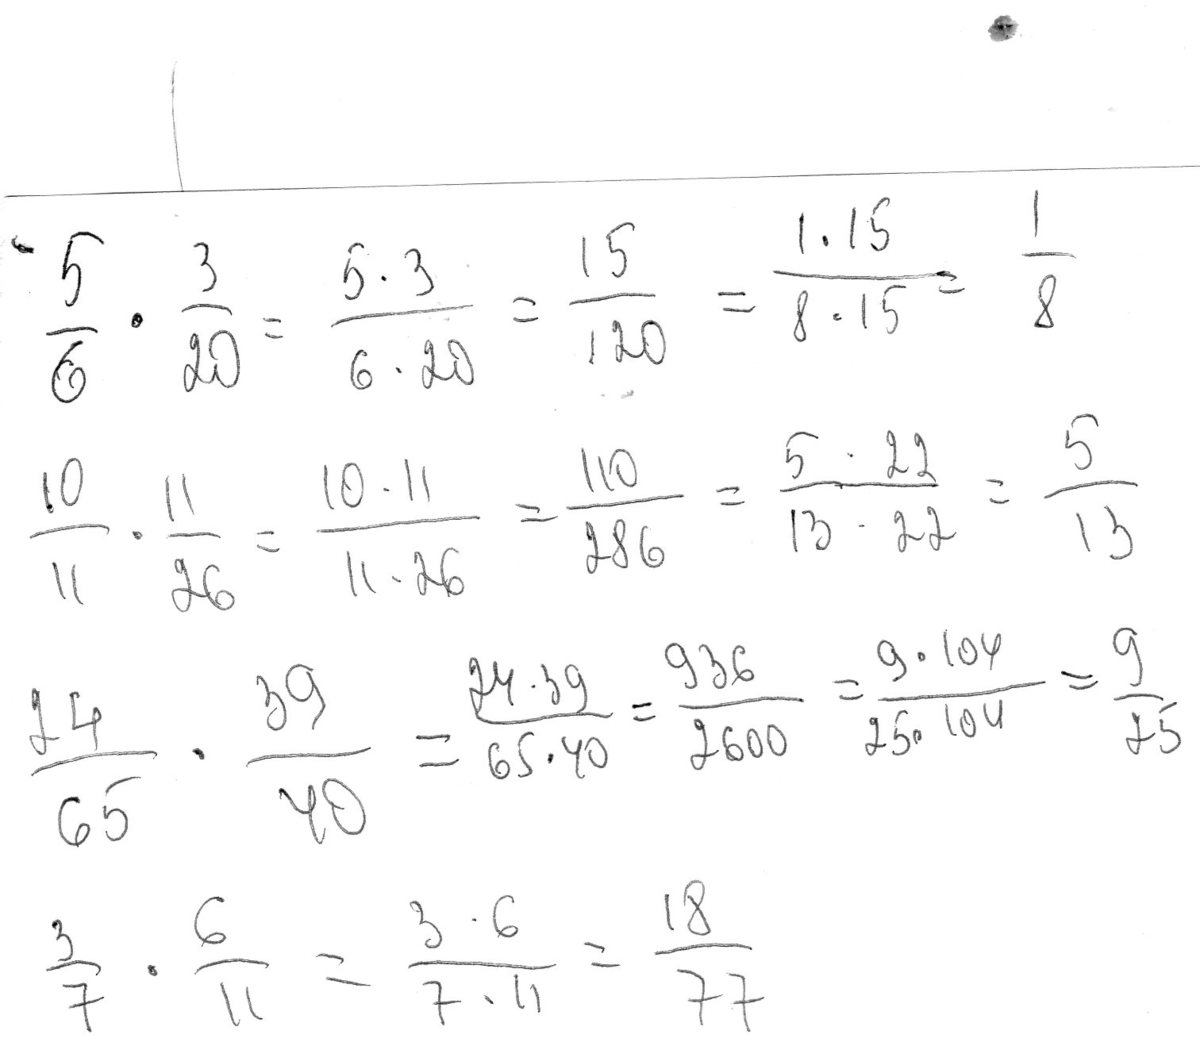 5/6 · 3/20 = 5·3/6·20 = 15/120 = 1·15/8·15 = 1/8
10/11 · 11/26 = 10·11/11·26 = 110/286 = 5·22/13·22 = 5/13
24/65 · 39/40 = 24·39/65·40 = 936/2600 = 9·104/25·104 = 9/25
3/7 · 6/11 = 3·6/7·11 = 18/77